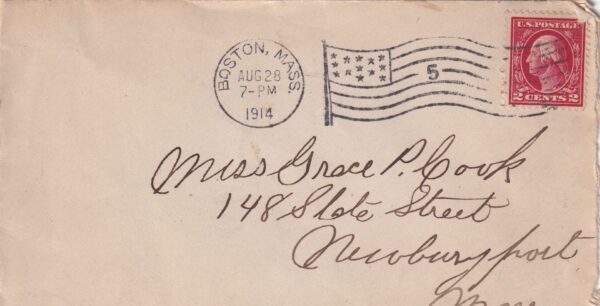 BOSTON, MASS.
AUG 28
7-PM
1914
5
U.S. POSTAGE
2 CENTS 2
Miss Grace P. Cook
148 State Street
Newburyport
Mass